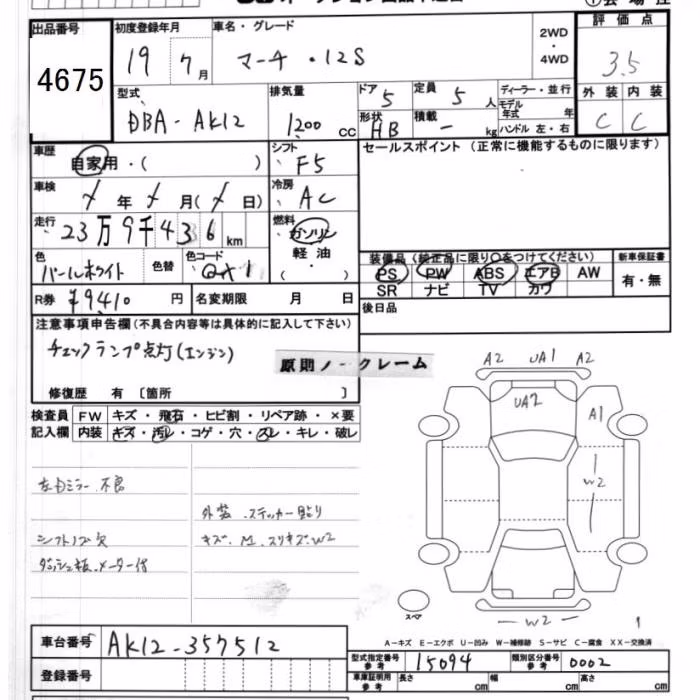 出品番号 4675
初度登録年月 19 7月
車名・グレード マーチ ・12S
2WD ・ 4WD
評価点 3.5
型式 DBA-AK12
排気量 1200 cc
ドア 5
定員 5 人
ディーラー・並行
モデル年式 年
外装 内装
C C
形状 HB
積載 - kg
ハンドル 左・右
車歴 自家用・( )
シフト F5
セールスポイント (正常に機能するものに限ります)
車検 年 月( 日)
冷房 AC
走行 23万9千436 km
燃料 ガソリン
軽油
・( )
色 パールホワイト
色替
色コード QX1
装備品 (純正品に限り○をつけてください)
新車保証書
PS PW ABS エアB AW
有・無
SR ナビ TV カワ
R券 ¥9410 円
名変期限 月 日
後日品
注意事項申告欄(不具合内容等は具体的に記入して下さい)
チェックランプ点灯(エンジン)
原則ノークレーム
修復歴 有 〔箇所 〕
検査員 FW キズ・飛石・ヒビ割・リペア跡・×要
記入欄 内装 キズ・汚レ・コゲ・穴・スレ・キレ・破レ
A2 UA1 A2
UA2
A1
W2
左右ミラー不良
外装 .ステッカー貼り
シフトノブ欠
キズ.M.スリキズ.W2
ダッシュ板.メーター付
スペア
W2
A-キズ E-エクボ U-凹み W-補修跡 S-サビ C-腐食 XX-交換済
車台番号 AK12-357512
型式指定番号 参考 15094
類別区分番号 参考 0002
登録番号
車庫証明用 参考 長さ cm 幅 cm 高さ cm